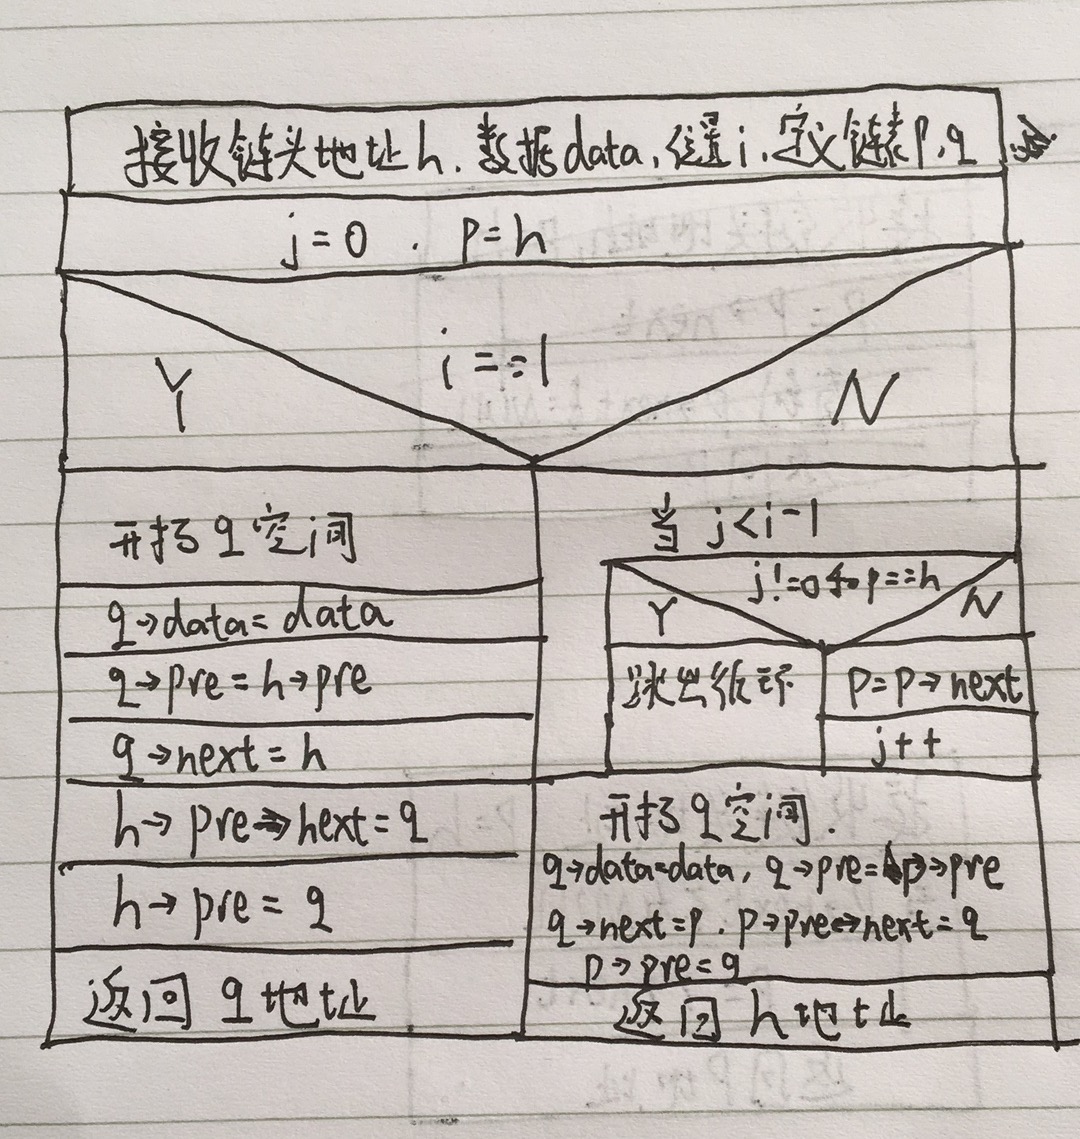 接收链头地址h.数据data,位置i,定义链表p,q
j=0 . p=h
i==1
Y
N
开扩q空间
q→data=data
q→pre=h→pre
q→next=h
h→pre→next=q
h→pre=q
返回 q地址
当 j<i-1
j!=0和p==h
Y
N
跳出循环
p=p→next
j++
开扩q空间.
q→data=data, q→pre=p→pre
q→next=p. p→pre→next=q
p→pre=q
返回 h地址